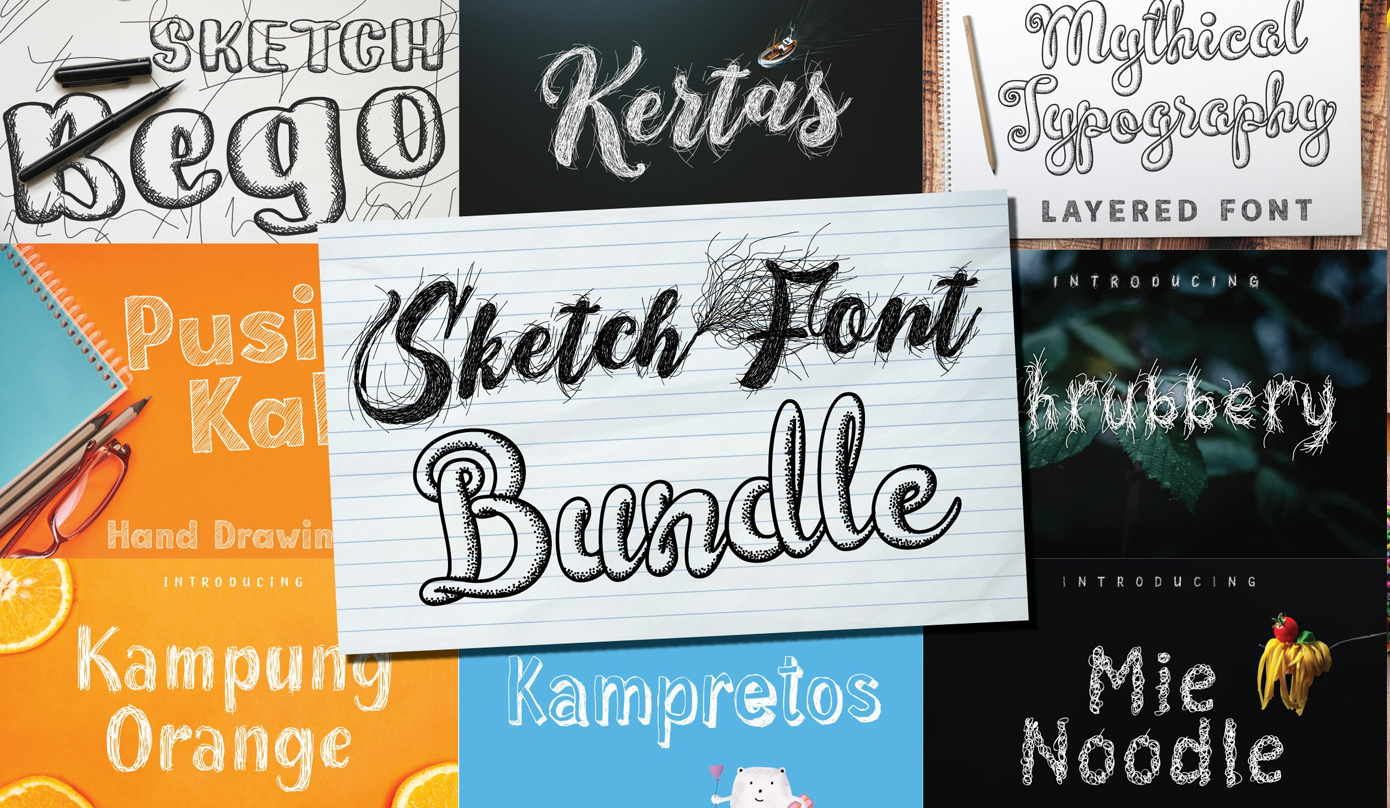 SKETCH
Bego
Kertas
Mythical
Typography
LAYERED FONT
Pusi
Kal
Hand Drawin
Sketch Font
Bundle
INTRODUCING
hrubbery
INTRODUCING
Kampung
Orange
Kampretos
INTRODUCING
Mie
Noodle